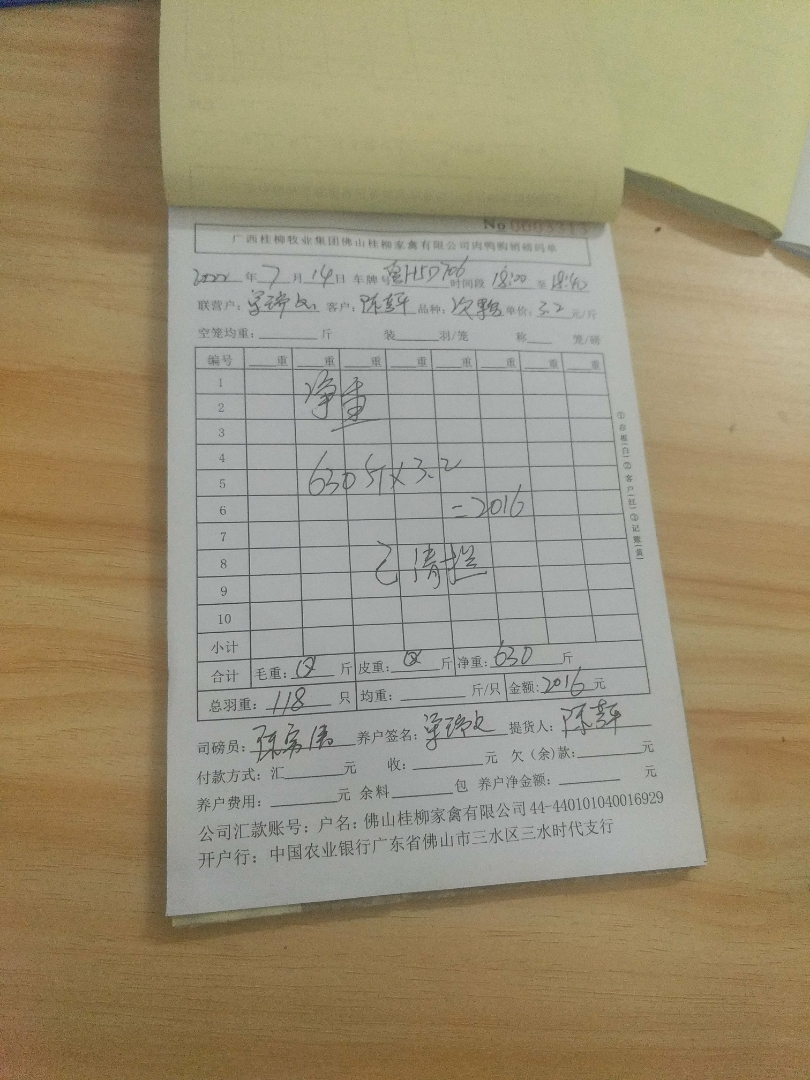 No 0003313
广西桂柳牧业集团佛山桂柳家禽有限公司肉鸭购销磅码单
2022年7月14日 车牌号粤H5D706时间段18:00至18:40
联营户: 客户:陈 品种:次鸭 单价:3.2元/斤
空笼均重:斤 装羽/笼 称 笼/磅
编号 重 重 重 重 重 重 重 重
1
2
净重
3
4
5
630斤×3.2
6
=2016
7
8
已清栏
9
10
小计
合计 毛重:斤 皮重:斤 净重:630斤
总羽重:118只 均重:斤/只 金额:2016元
司磅员:陈 养户签名: 提货人:陈
付款方式:汇元 收:元 欠(余)款:元
养户费用:元 余料包 养户净金额:元
公司汇款账号:户名:佛山桂柳家禽有限公司44-440101040016929
开户行:中国农业银行广东省佛山市三水区三水时代支行
①存根(白)②客户(红)③记账(黄)